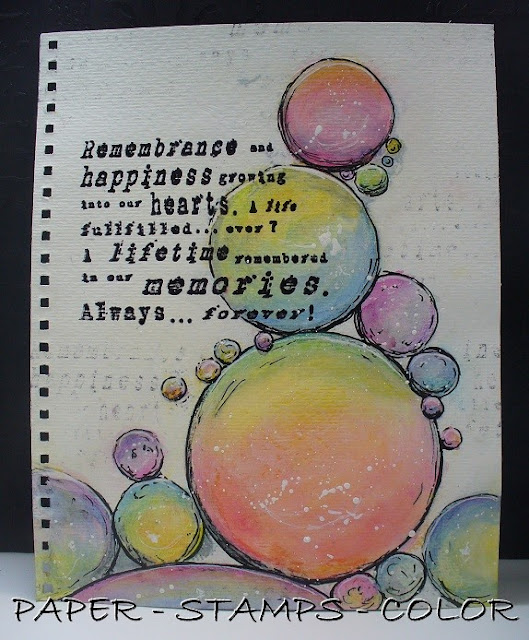 Remembrance and
happiness growing
into our hearts. A life
fullfilled... ever?
A lifetime remembered
in our memories.
Always... forever!
PAPER - STAMPS - COLOR